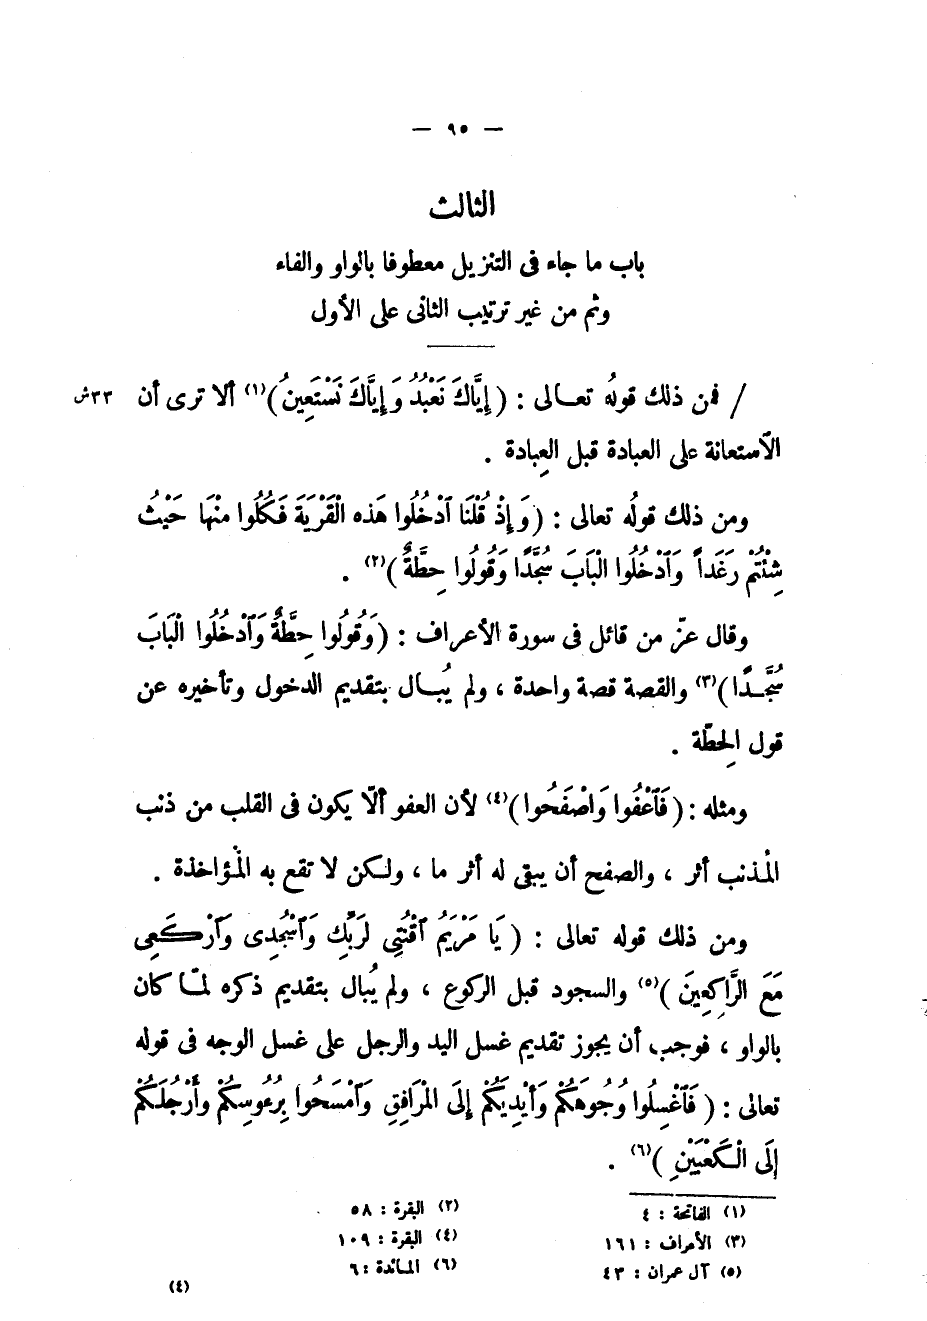 — ٩٥ —
الثالث
باب ما جاء فى التنزيل معطوفا بالواو والفاء
وثم من غير ترتيب الثانى على الأول
/ فمن ذلك قولُه تعـالى : ( إِيَّاكَ نَعْبُدُ وَإِيَّاكَ نَسْتَعِينُ )(١) ألا ترى أن ٣٣ش
الاستعانة على العبادة قبل العِبادة .
ومن ذلك قولُه تعالى : ( وَإِذْ قُلْنَا ٱدْخُلُوا هَذه الْقَرْيَةَ فَكُلُوا منْهَا حَيْثُ
شِئْتُمْ رَغَداً وَٱدْخُلُوا الْبَابَ سُجَّدًا وَقُولُوا حِطَّةٌ )(٢) .
وقال عزّ من قائل فى سورة الأعراف : ( وَقُولُوا حِطَّةٌ وَٱدْخُلُوا الْبَابَ
سُجَّـدًا )(٣) والقصة قصة واحدة ، ولم يُبـال بتقديم الدخول وتأخيره عن
قول الحِطّة .
ومثله : ( فَٱعْفُوا وَاصْفَحُوا )(٤) لأن العفو ألّا يكون فى القلب من ذنب
المُذنب أثر ، والصفح أن يبقى له أثر ما ، ولكن لا تقع به المُؤاخذة .
ومن ذلك قوله تعالى : ( يَا مَرْيَمُ ٱقْنُتِي لرَبِّكِ وَٱسْجُدِى وَٱرْكَعِى
مَعَ الرَّاكِعِينَ )(٥) والسجود قبل الركوع ، ولم يُبال بتقديم ذكره لمّـا كان
بالواو ، فوجب أن يجوز تقديم غسل اليد والرجل على غسل الوجه فى قوله
تعالى : ( فَٱغْسِلُوا وُجُوهَكُمْ وَأَيْدِيَكُمْ إِلَى الْمَرَافِقِ وَٱمْسَحُوا بِرُءُوسِكُمْ وَأَرْجُلَكُمْ
إِلَى الْكَعْبَيْنِ )(٦) .
(١) الفاتحة : ٤ (٢) البقرة : ٥٨
(٣) الأعراف : ١٦١ (٤) البقرة : ١٠٩
(٥) آل عمران : ٤٣ (٦) المـائدة : ٦
(٤)